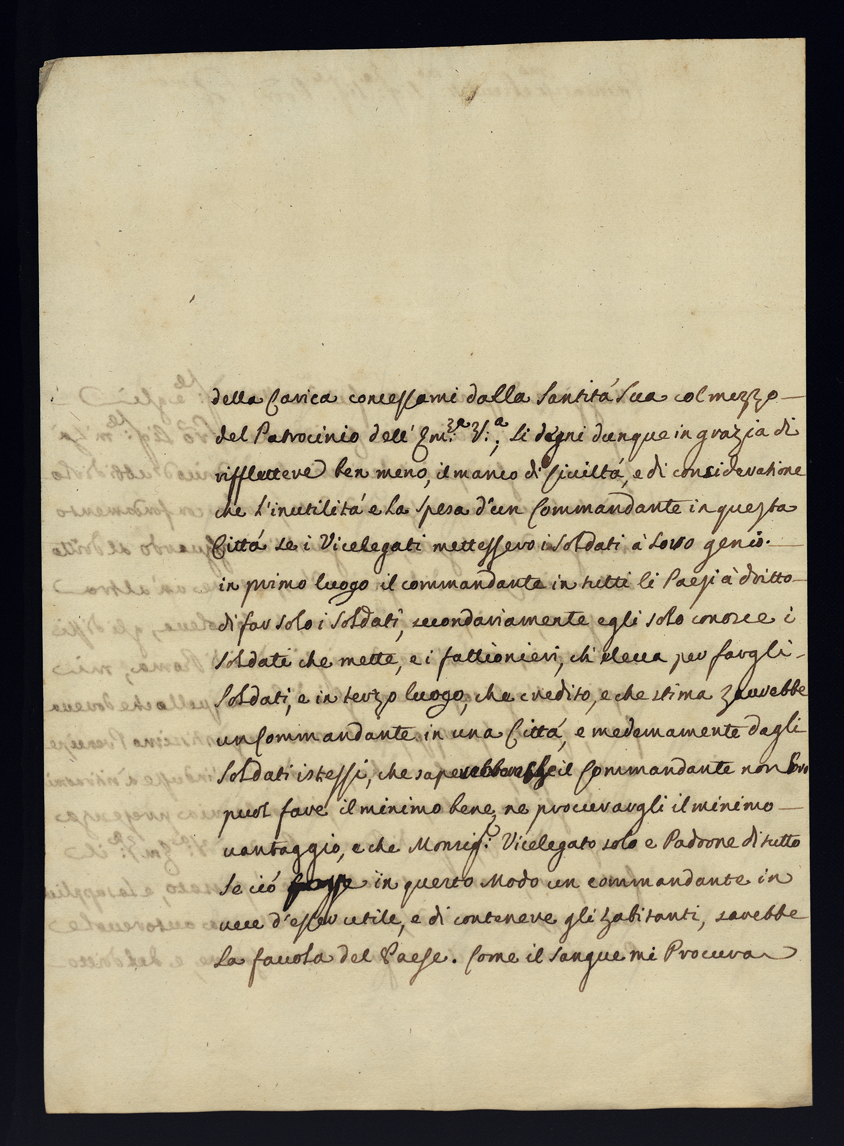 della Carica concessami dalla Santitá Sua col mezzo
del Patrocinio dell' Em.za V.a; si dégni dunque in grazia di
riffletterè ben meno, il manco di Civiltá, e di considerazione
che L'inutilitá e La Spesa d'un Commandante in questa
Cittá se i Vicelegati mettessero i soldati á Loro genio.
in primo luogo il commandante in tutti li Paesi á dritto
di far solo i Soldati, secondariamente egli solo conosce i
Soldati che mette, e i fattionieri, ch' elecca per fargli
Soldati, e in terzo luogo, che credito, e che stima haurebbe
un Commandante in una Cittá, e medemamente dagli
Soldati istessi, che il Commandante non Loro
puol fare il minimo bene, ne procurargli il minimo
vantaggio, e che Monsig.r Vicelegato solo e Padrone di tutto
Se ció in questo Modo un commandante in
vece d'esser utile, e di contenere gli habitanti, sarebbe
La favola del Paese. Come il Sangue mi Procura